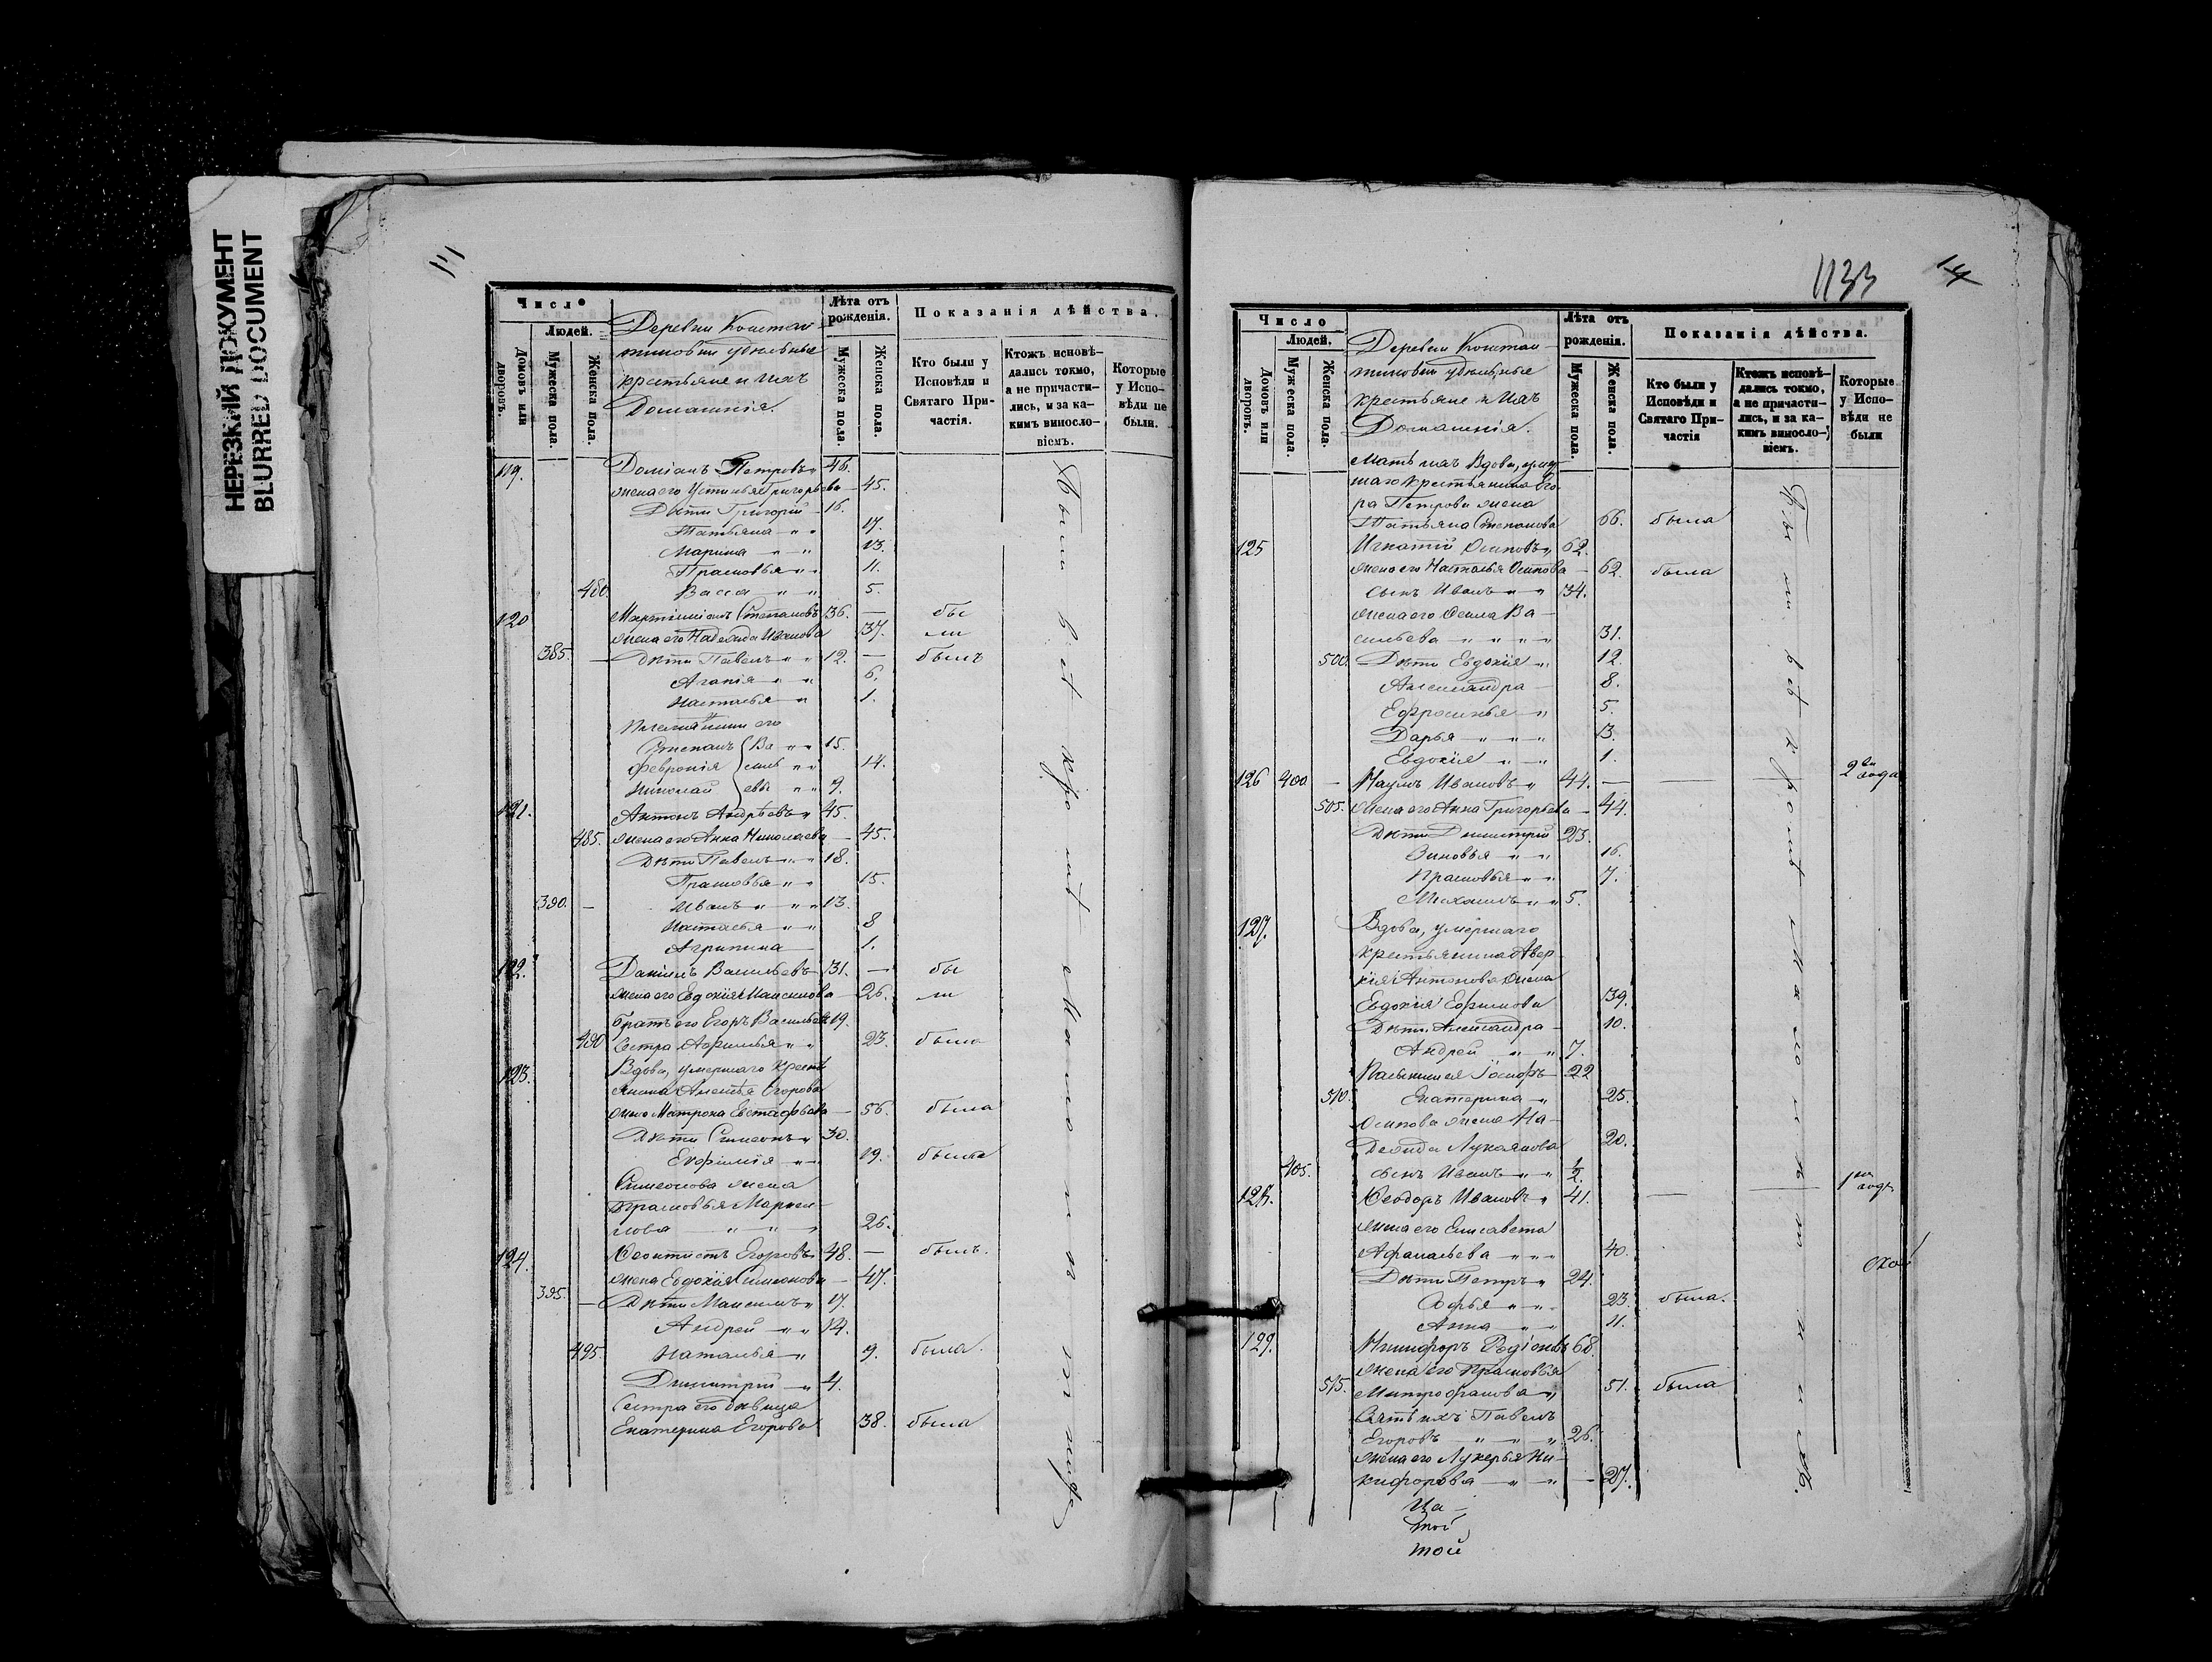 НЕРЕЗКИЙ ДОКУМЕНТ
BLURRED DOCUMENT
Число
Людей.
Домовъ или дворовъ.
Мужеска пола.
Женска пола.
Деревни Констан-
тиновки удѣльные
крестьяне и ихъ
Домашнія.
Лѣта отъ рожденія.
Мужеска пола.
Женска пола.
Показанія дѣйства.
Кто были у Исповѣди и Святаго При-частія.
Ктожъ исповѣ-дались токмо, а не причасти-лись, и за ка-кимъ винosло-віемъ.
Которые у Испо-вѣди не были.
119. Доміанъ Петровъ 46.
жена его Устинья Григорьева 45.
Дѣти Григорій 16.
Татьяна 17.
Марина 13.
Прасковья 11.
480. Васса 5.
120 Мартиміанъ Степановъ 36. — бы
жена его Надежда Иванова 37. ли
385. — Дѣти Павелъ 12. — былъ
Агапія 6.
Наталья 1.
Племянники его
Степанъ Ва 15.
Февронія силь 14.
Николай евы 9.
121. Антонъ Андрѣевъ 45.
485. жена его Анна Николаева 45.
Дѣти Павелъ 18.
Прасковья 15.
390. — Иванъ 13.
Наталья 8
Агрипина 1.
122. Даніилъ Васильевъ 31. — бы
жена его Евдокія Максимова 26. ли
братъ его Егоръ Васильевъ 19.
490 Сестра Афимья 23. была
123. Вдова, умершаго крестья
янина Алексѣя Егорова
жена Матрона Евстафьева 56. была
Дѣти Симеонъ 30.
Евфимія 19. была
Симеонова жена
Прасковья Маркел-
лова 26.
124. Феоктистъ Егоровъ 48. — былъ.
жена Евдокія Симеонова 47.
395. — Дѣти Максимъ 17.
Андрей 14.
495. Наталья 9. была.
Димитрій 4.
Сестра его дѣвица
Екатерина Егорова 38. была
1133
Число
Людей.
Домовъ или дворовъ.
Мужеска пола.
Женска пола.
Деревни Констан-
тиновки удѣльные
крестьяне и ихъ
Домашнія.
Лѣта отъ рожденія.
Мужеска пола.
Женска пола.
Показанія дѣйства.
Кто были у Исповѣди и Святаго При-частія
Ктожъ исповѣ-дались токмо, а не причасти-лись, и за ка-кимъ винosло-віемъ.
Которые у Испо-вѣди не были
Мать ихъ Вдова, умер-
шаго крестьянина Его-
ра Петрова жена
Татьяна Степанова 66. была
125 Игнатій Осиповъ 62.
жена его Наталья Осипова 62. была
Сынъ Иванъ 34.
жена его Фекла Ва-
сильева 31.
500. Дѣти Евдокія 12.
Александра 8.
Ефросинья 5.
Дарья 3.
Евдокія 1.
126 400 — Наумъ Ивановъ 44. — — 2 года
505. жена его Анна Григорьева 44.
Дѣти Димитрій 23.
Зиновья 16.
Прасковья 7.
Михаилъ 5.
127. Вдова, умершаго
крестьянина Авер-
кія Антонова жена
Евдокія Ефимова 39.
Дѣти Александра 10.
Андрей 7.
Іосифъ 22
510. Екатерина 25.
Осипова жена На-
дежда Лукаянова 20.
405. сынъ Иванъ 1/2.
128. Феодоръ Ивановъ 41. — — 1 годъ
жена его Елисавета
Афанасьева 40.
Дѣти Петръ 24.
Софья 23. была.
Анна 11.
129. Никифоръ Родіоновъ 68.
жена его Прасковья
515. Митрофанова 51. была
Зять ихъ Павелъ
Егоровъ 26.
жена его Лукерья Ни-
кифорова — 27.